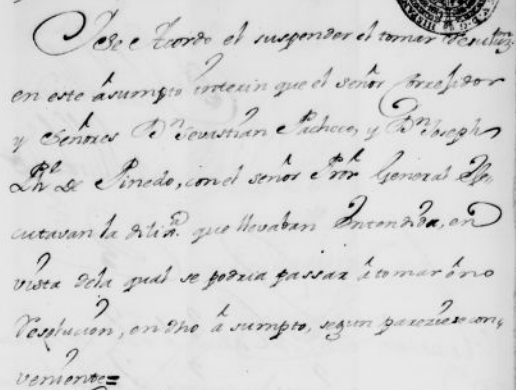 Y se Acordo el suspender el tomar resoluz.on
en este âsumpto interin que el señor Correxidor
y Señores Dn Sevastian Pacheco, y Dn Joseph
Ph.e de Pinedo, con el señor Pror General Exe
cutavan la dilix.a que llevaban Entendida, en
vista dela qual se podria passar â tomar ô no
resoluzion, en dho âsumpto, segun pareziese con,
veniente=